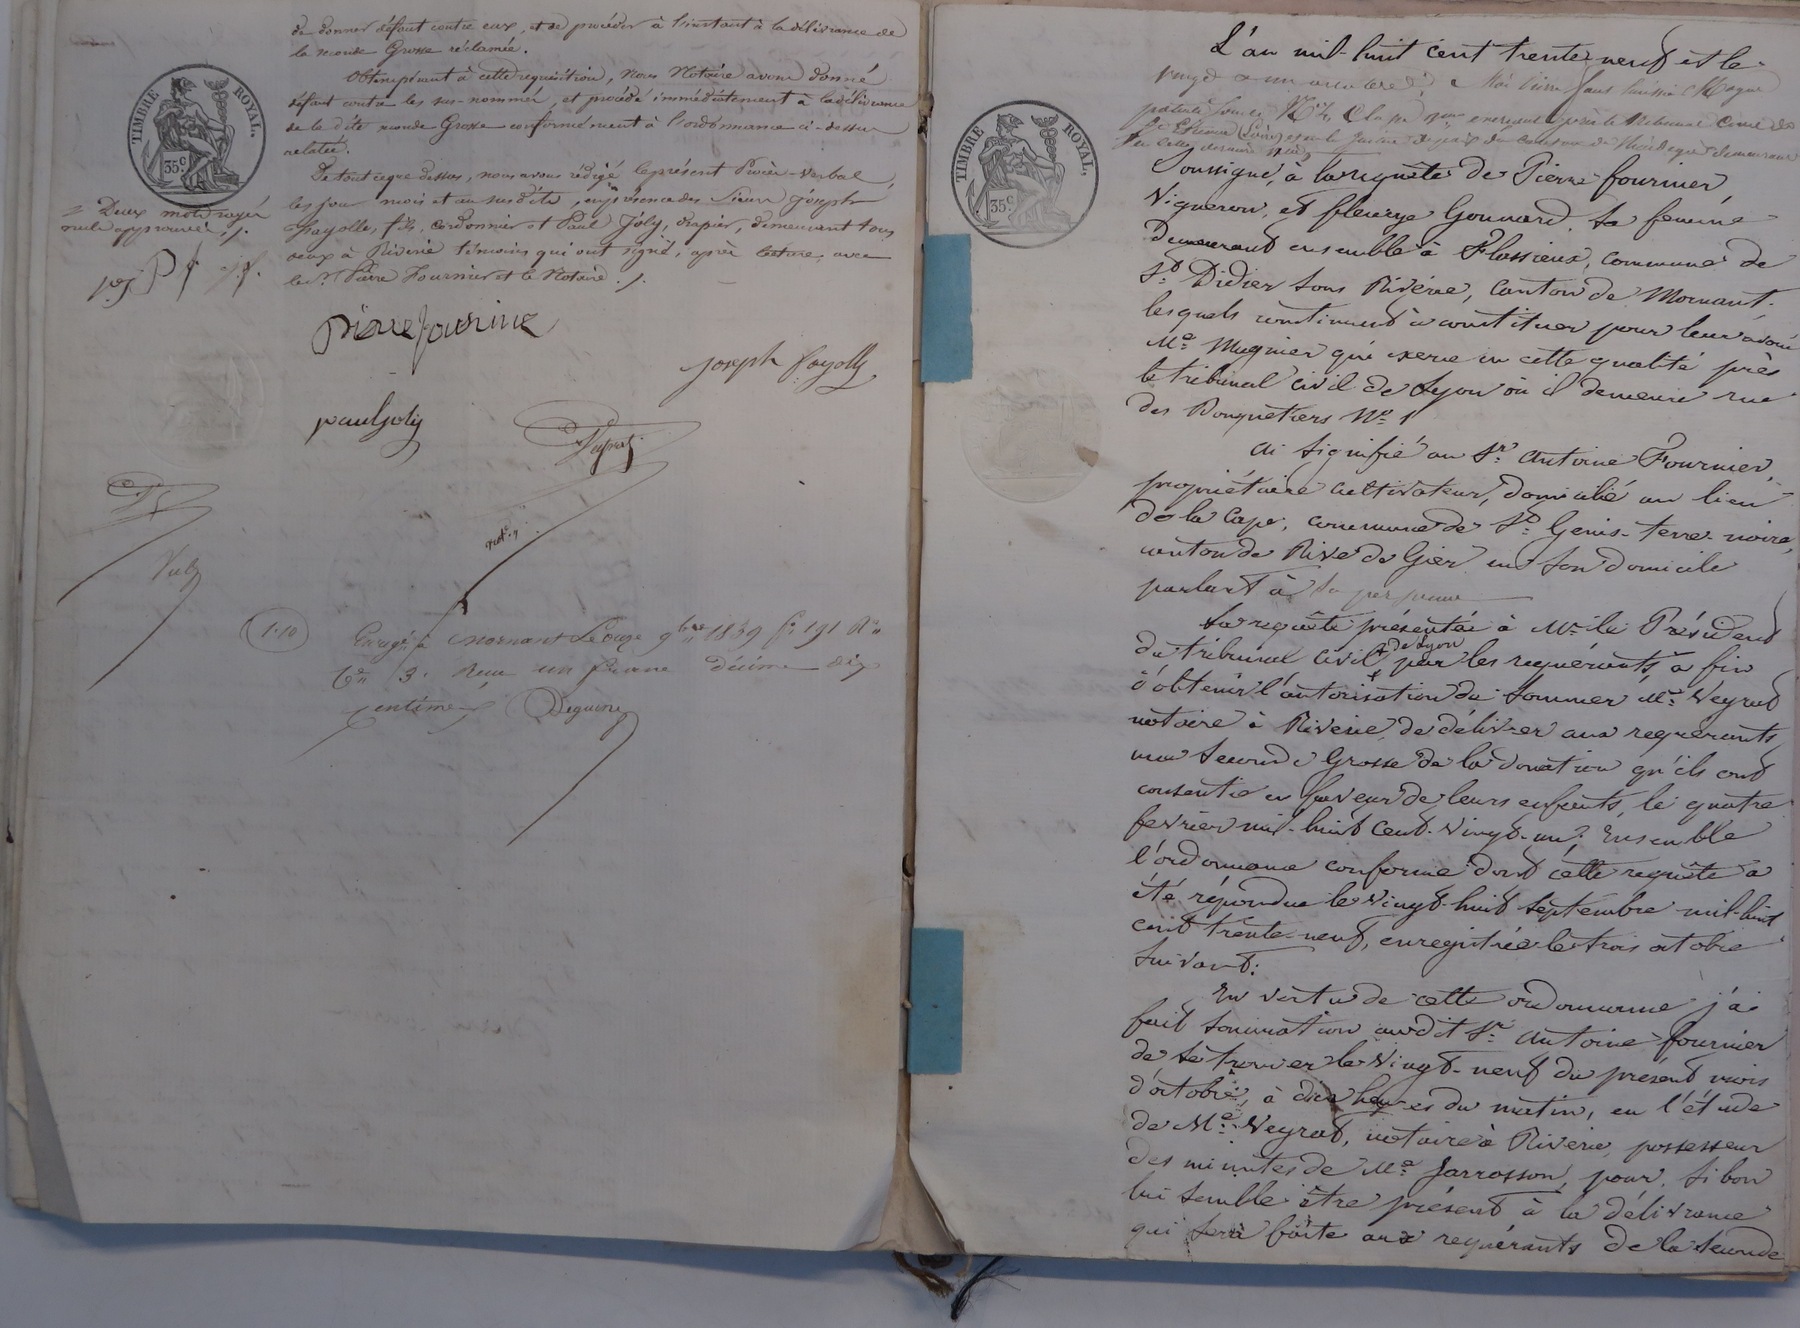 de donner défaut contre eux, et de procéder à l'instant à la délivrance de
la seconde Grosse réclamée.
Obtempérant à cette requisition, nous Notaire avons donné
défaut contre les sus-nommés, et procédé immédiatement à la délivrance
de la dite seconde Grosse conformément à l'ordonnance ci-dessus
relatée.
De tout ce que dessus, nous avons rédigé le présent Procès-Verbal,
les jour mois et an susdits, en présence des Sieurs Joseph
Fayolle, fils, cordonnier et Paul Joly, drapier, demeurant tous
deux à Riverie témoins qui ont signé, après lecture, avec
le Sr. Pierre Fournier et le Notaire ./.
TIMBRE ROYAL.
35 c.
Deux mots rayés
nuls approuvés ./.
pierre fournier
joseph fayolle
paul joly
not.
1.10
Enregé. à Mornant le onze 9bre 1839 fo. 191 Ro.
Ce. 3. Reçu un franc décime dix
centimes
L'an mil-huit cent trente-neuf et le
vingt
patenté
Soussigné, à la requête de Pierre fournier
Vigneron, et fleurye Gonnard, sa femme
Demeurant ensemble à Flassieux, commune de
St. Didier sous Riverie, canton de Mornant.
lesquels continuent à constituer pour leur avoué
Me. Mugnier qui exerce en cette qualité près
le tribunal civil de Lyon où il demeure rue
des Bouquetiers No. 1
ai signifié au Sr. Antoine Fournier,
propriétaire cultivateur, domicilié au lieu
de la Cape, commune de St. Genis-terre-noire,
canton de Rive de Gier en son domicile
parlant à sa personne
La requête présentée à Mr. le Président
du tribunal civil de Lyon par les requérants, à fin
d'obtenir l'autorisation de sommer Me. Veyrat
notaire à Riverie, de délivrer aux requérants,
une seconde Grosse de la donation qu'ils ont
consentie en faveur de leurs enfants, le quatre
fevrier mil-huit cent-vingt-un, Ensemble
l'ordonnance conforme dont cette requête a
été répondue le vingt-huit septembre mil-huit
cent trente-neuf, enregistrée le trois octobre
suivant.
En vertu de cette ordonnance j'ai
fait sommation audit Sr. Antoine fournier
de se trouver le vingt-neuf du présent mois
d'octobre, à dix heures du matin, en l'étude
de Me. Veyrat, notaire à Riverie, possesseur
des minutes de Me. Jarrosson, pour, si bon
lui semble être présent à la délivrance
qui sera faite aux requérants de la seconde
TIMBRE ROYAL.
35 c.